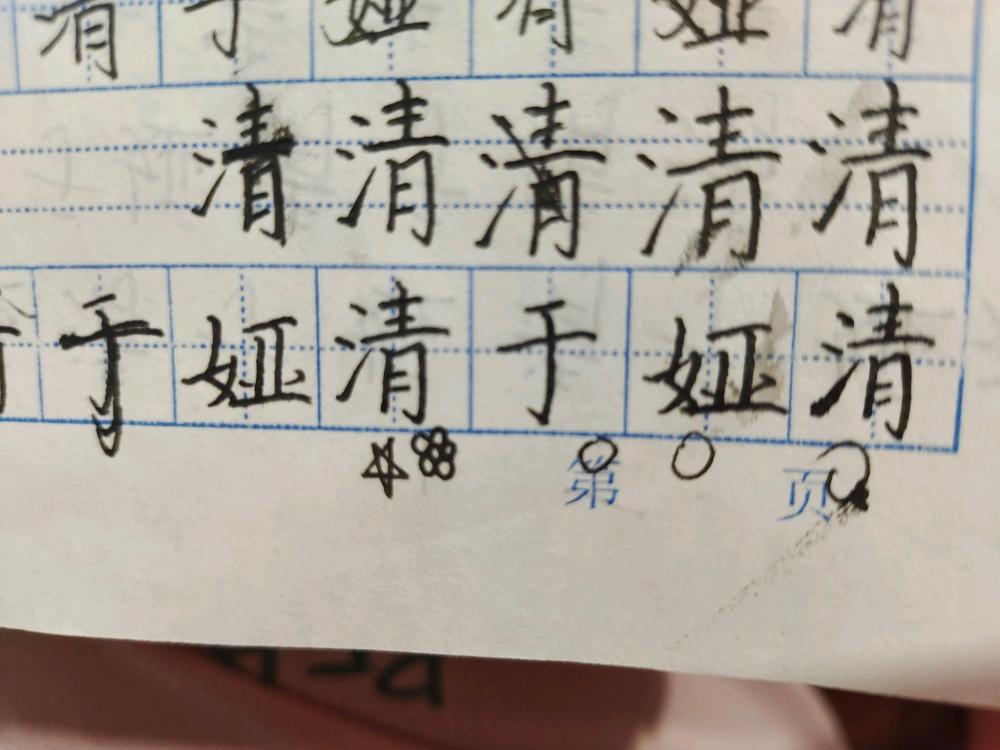 清于娅清娅清
清清清清清
于娅清于娅清
第 页